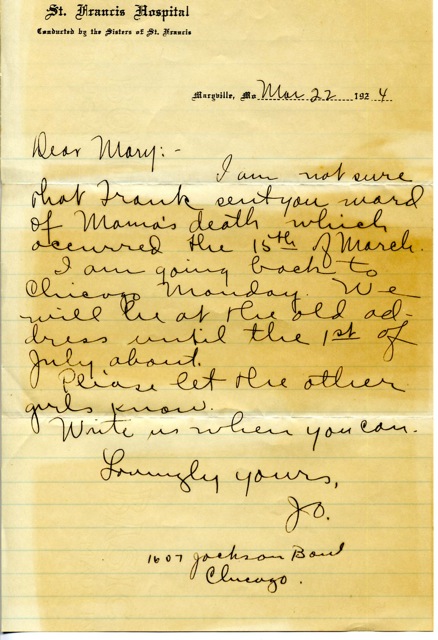 St. Francis Hospital
Conducted by the Sisters of St. Francis
Maryville, Mo. Mar 22 1924
Dear Mary:-
I am not sure
that Frank sent you word
of Mama's death which
occurred the 15th of March.
I am going back to
Chicago Monday. We
will be at the old ad-
dress until the 1st of
July about.
Please let the other
girls know.
Write us when you can.
Lovingly yours,
Jo.
1607 Jackson Boul
Chicago.